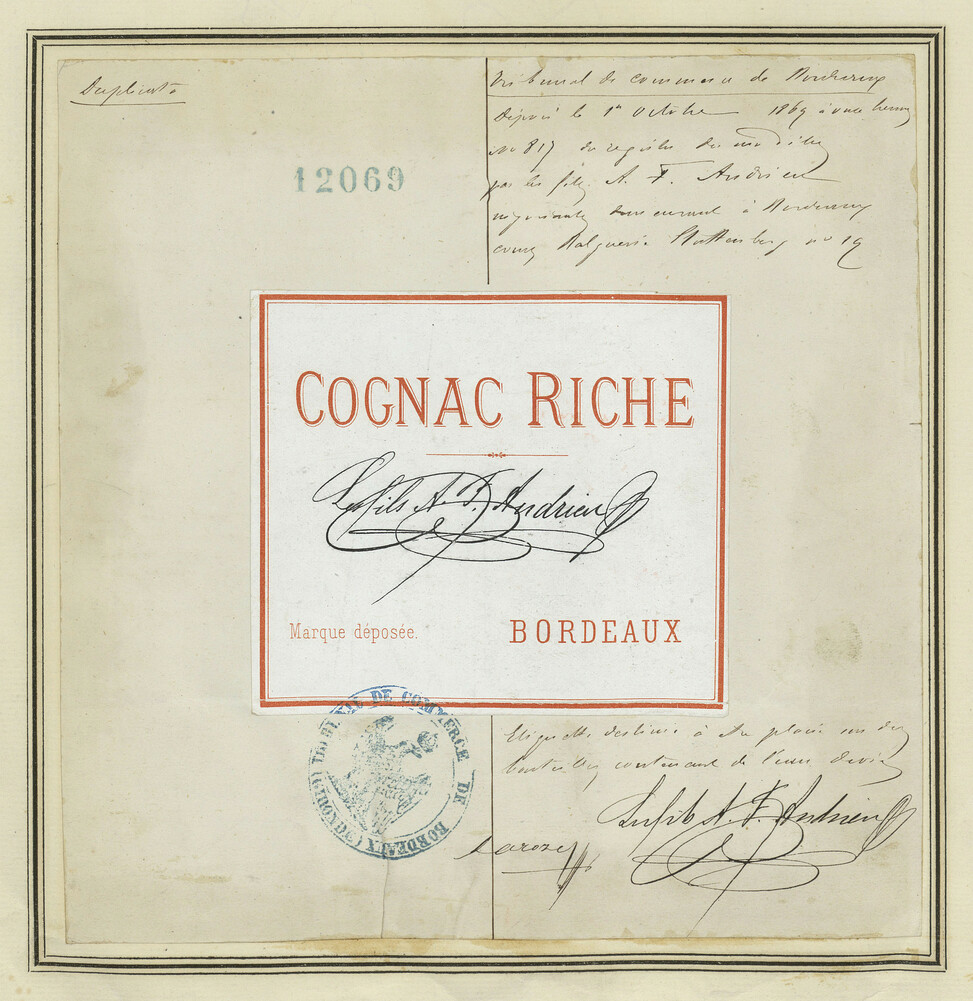 Duplicata
12069
Tribunal de commerce de Bordeaux
Déposé le 1er Octobre 1869 à onze heures
No 817 du registre des modèles
par les fils A. F. Andrieu
négociants demeurant à Bordeaux
cours Balguerie Stuttenberg no 19
COGNAC RICHE
Les fils A. F. Andrieu
Marque déposée.
BORDEAUX
TRIBUNAL DE COMMERCE DE BORDEAUX (GIRONDE)
Etiquette destinée à être placée sur des
bouteilles contenant de l'eau de vie
Les fils A. F. Andrieu
Laroze